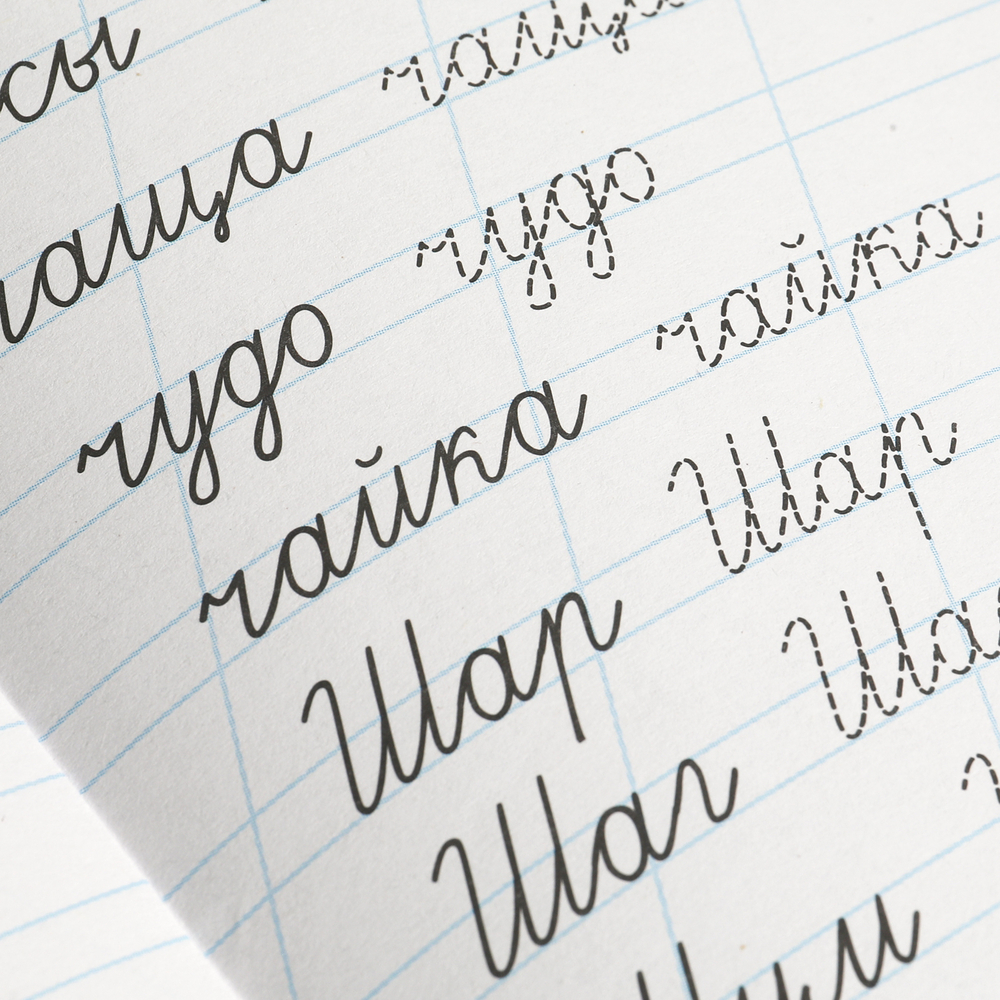 сы
чаща чаща
чудо чудо
чайка чайка
Шар Шар
Шаг Ша